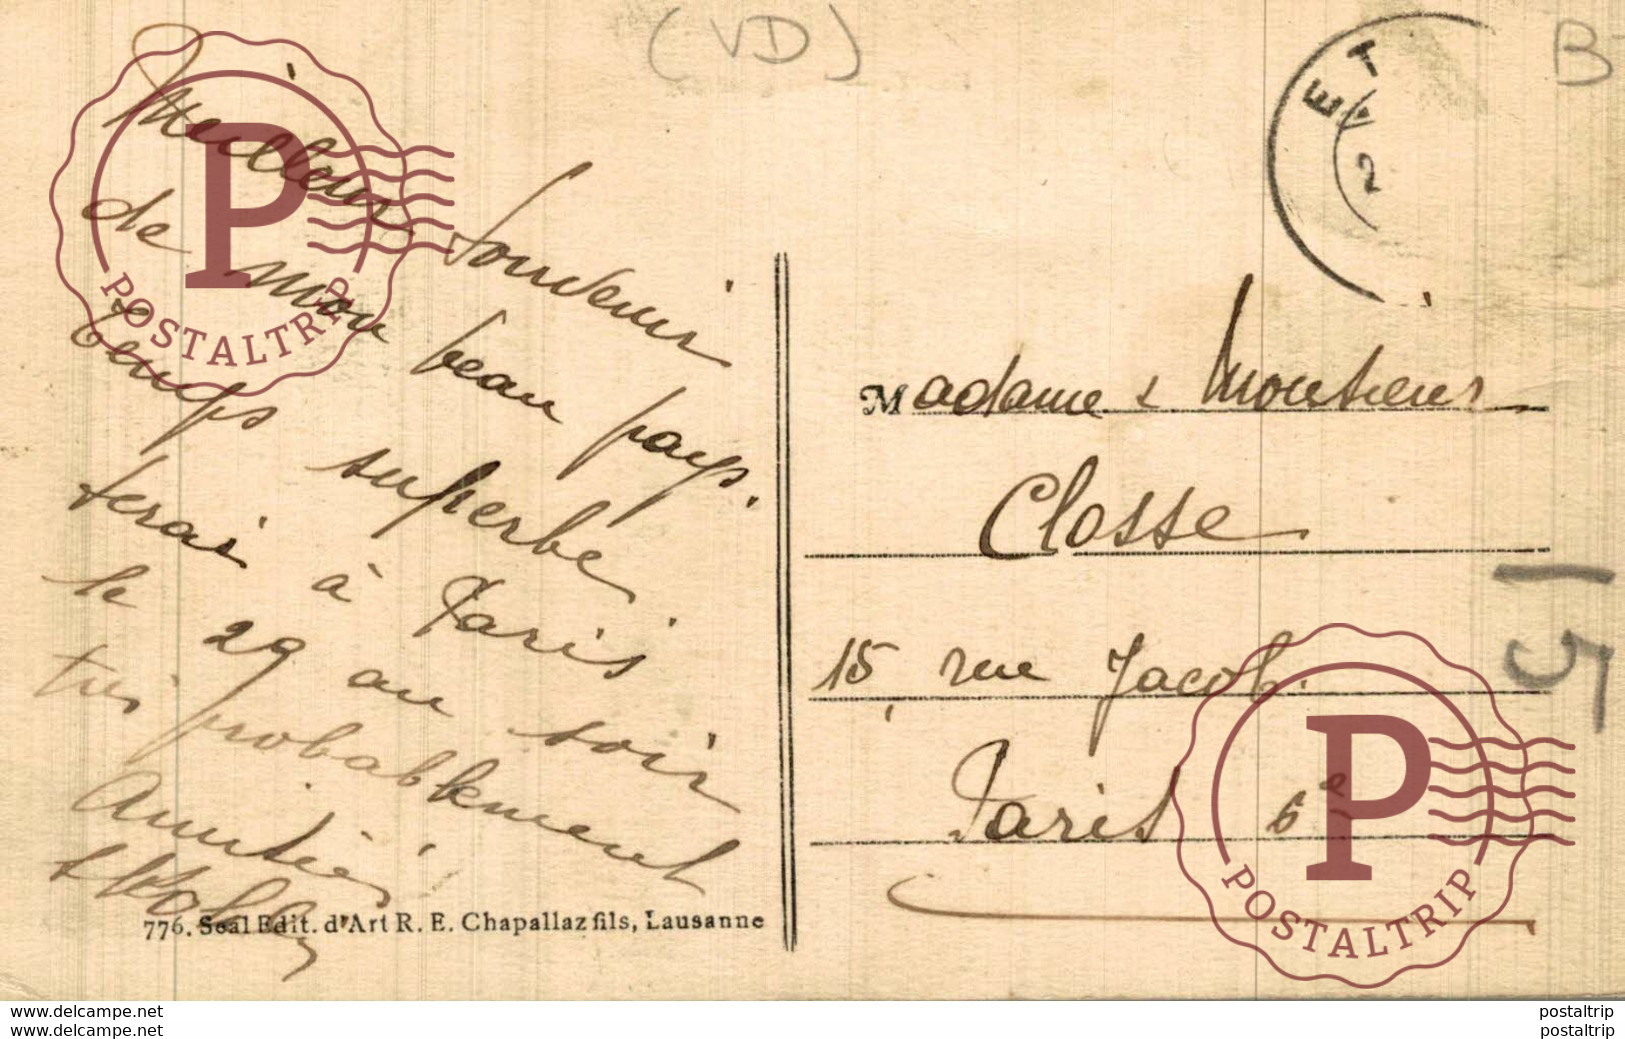 (VD)
B
ET
2
Meilleur Souvenir
de mon beau pays.
temps superbe
serai à Paris
le 29 au soir
très probablement
Amitiés
776. Seal Edit. d'Art R. E. Chapallaz fils, Lausanne
Madame & Monsieur
Closse
15, rue Jacob.
Paris 6e
15
P
POSTALTRIP
P
POSTALTRIP
www.delcampe.net postaltrip
www.delcampe.net postaltrip